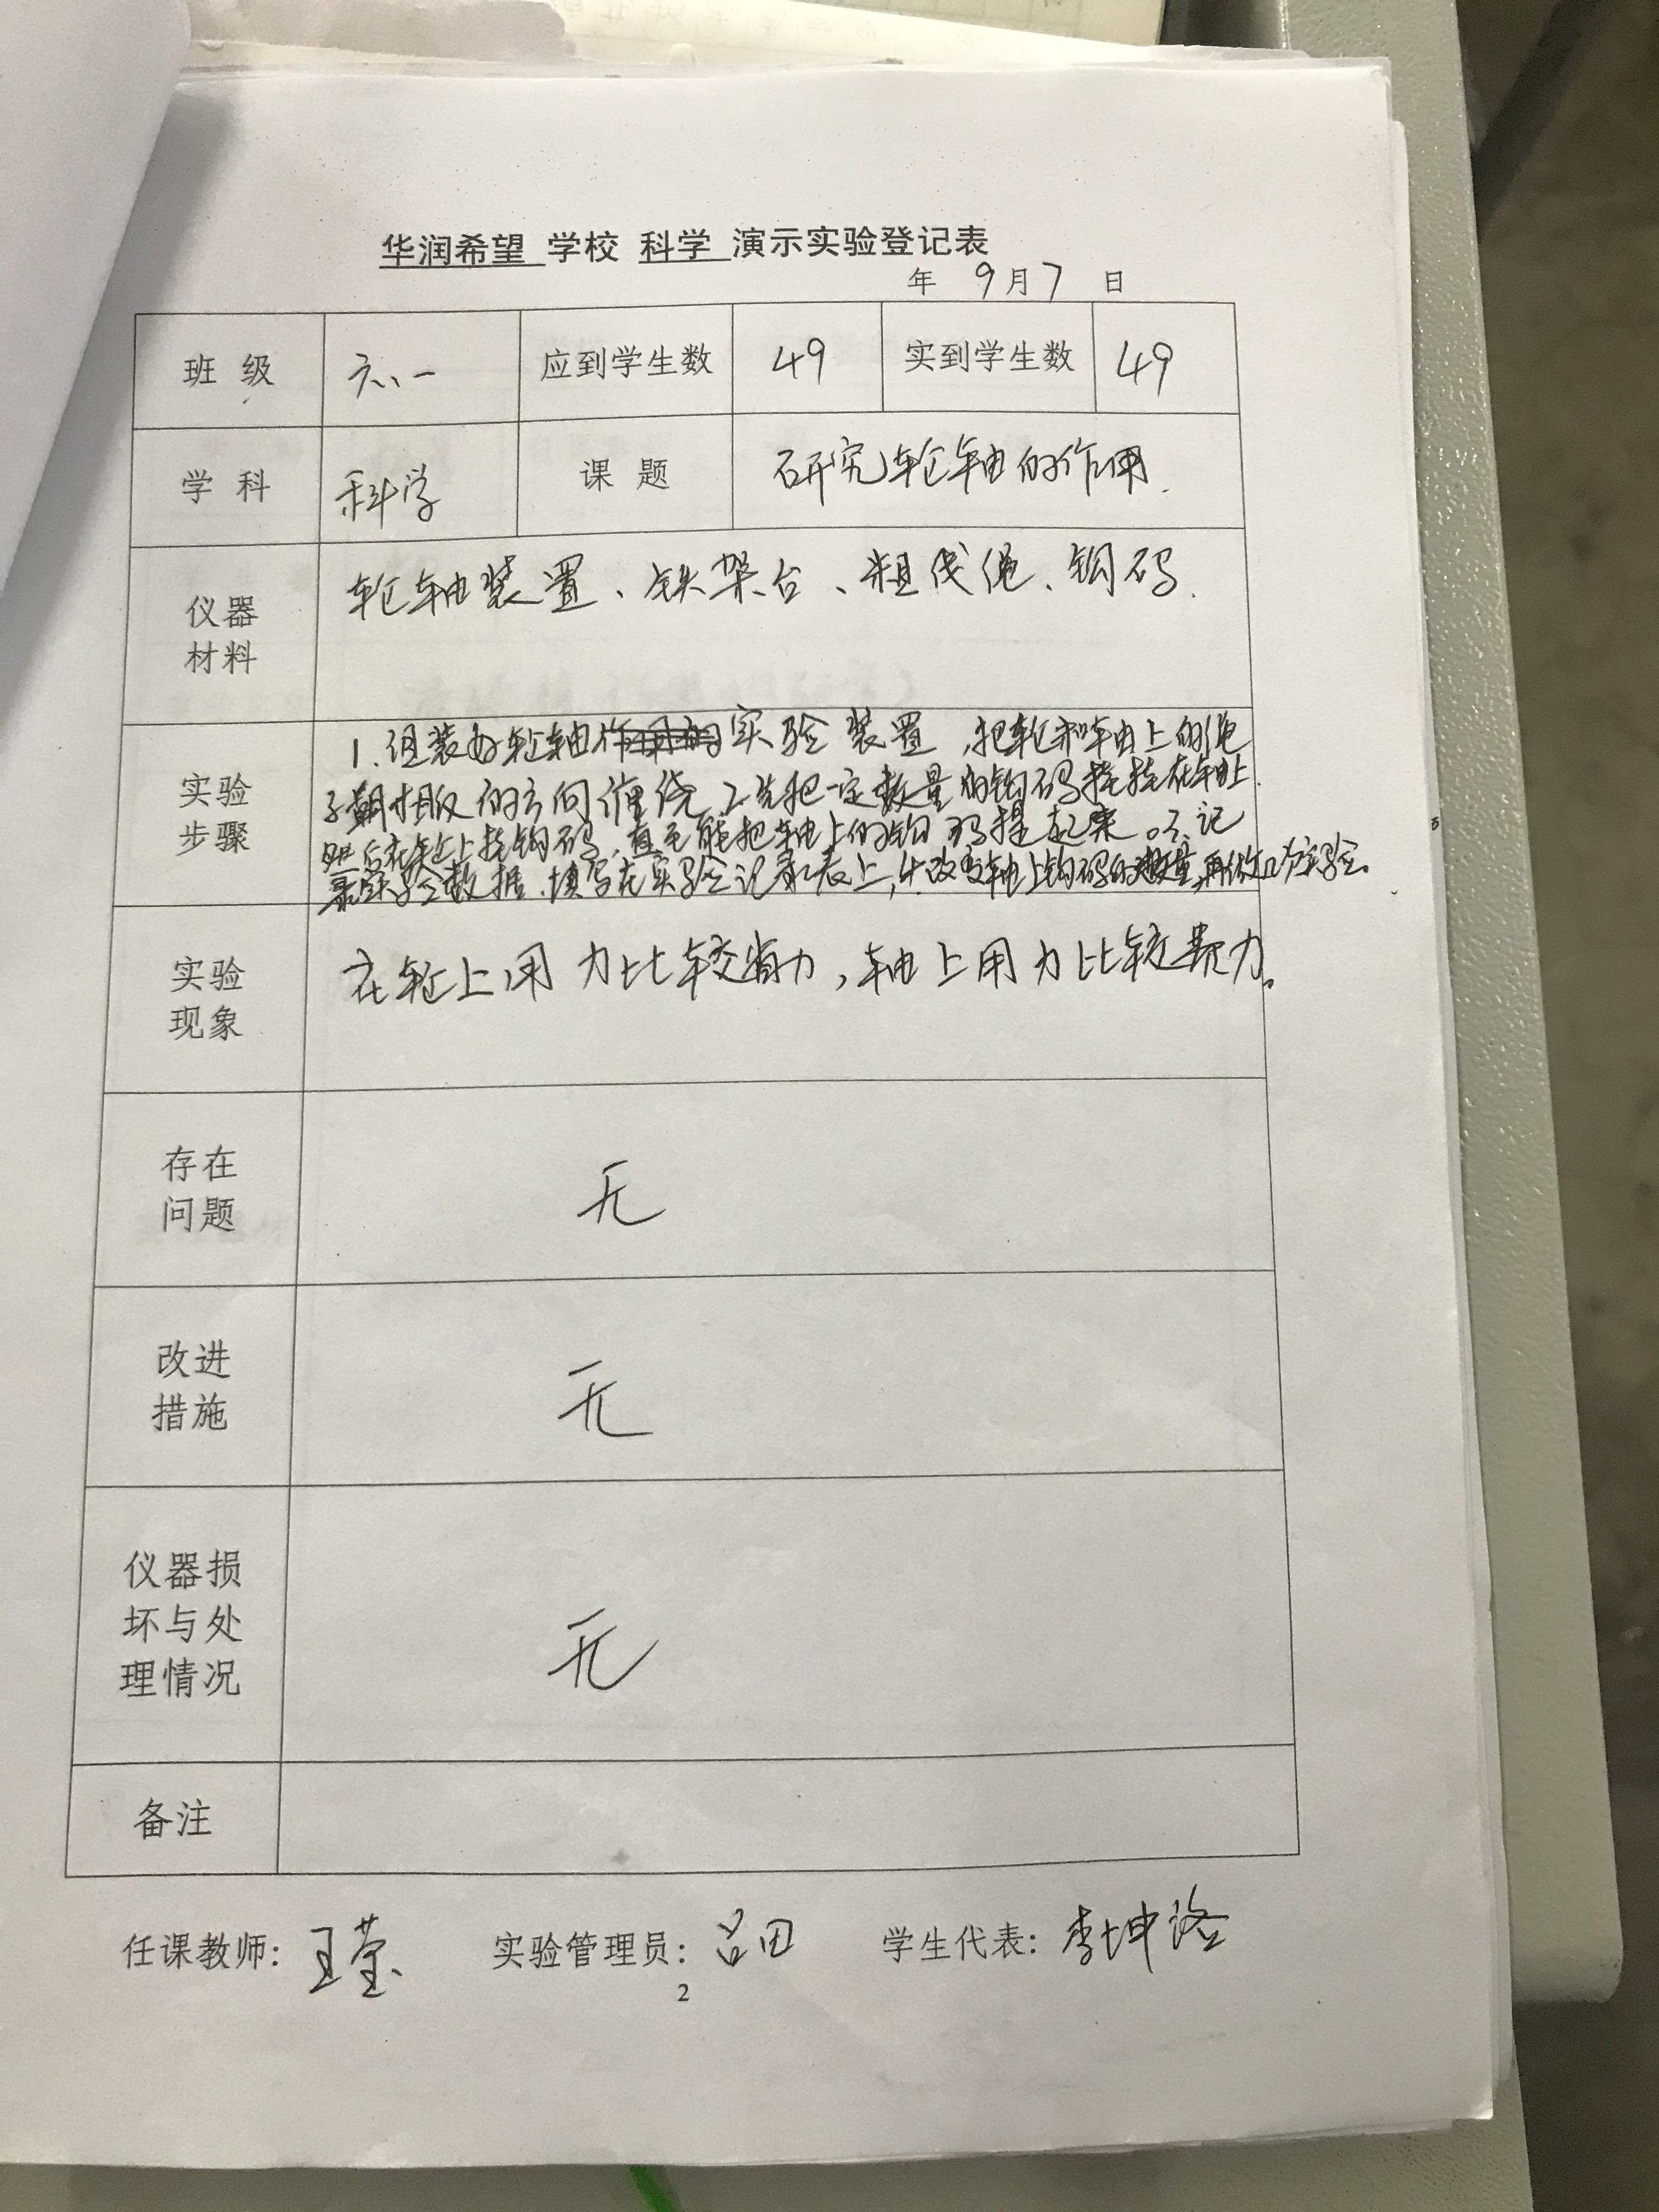 华润希望 学校 科学 演示实验登记表
年 9月7 日
班 级 六、一 应到学生数 49 实到学生数 49
学 科 科学 课 题 研究轮轴的作用
仪器
材料
轮轴装置、铁架台、粗线绳、钩码.
实验
步骤
1.组装好轮轴实验装置,把轮和轴上的绳
子朝相反的方向缠绕 2.先把一定数量的钩码挂在轴上.
然后在轮上挂钩码,直至能把轴上的钩码提起来。3.记
录实验数据.填写在实验记录表上,4.改变轴上钩码的数量,再做几次实验。
实验
现象
在轮上用力比较省力,轴上用力比较费力。
存在
问题
无
改进
措施
无
仪器损
坏与处
理情况
无
备注
任课教师: 王莹 实验管理员: 吕田 学生代表: 李坤
2